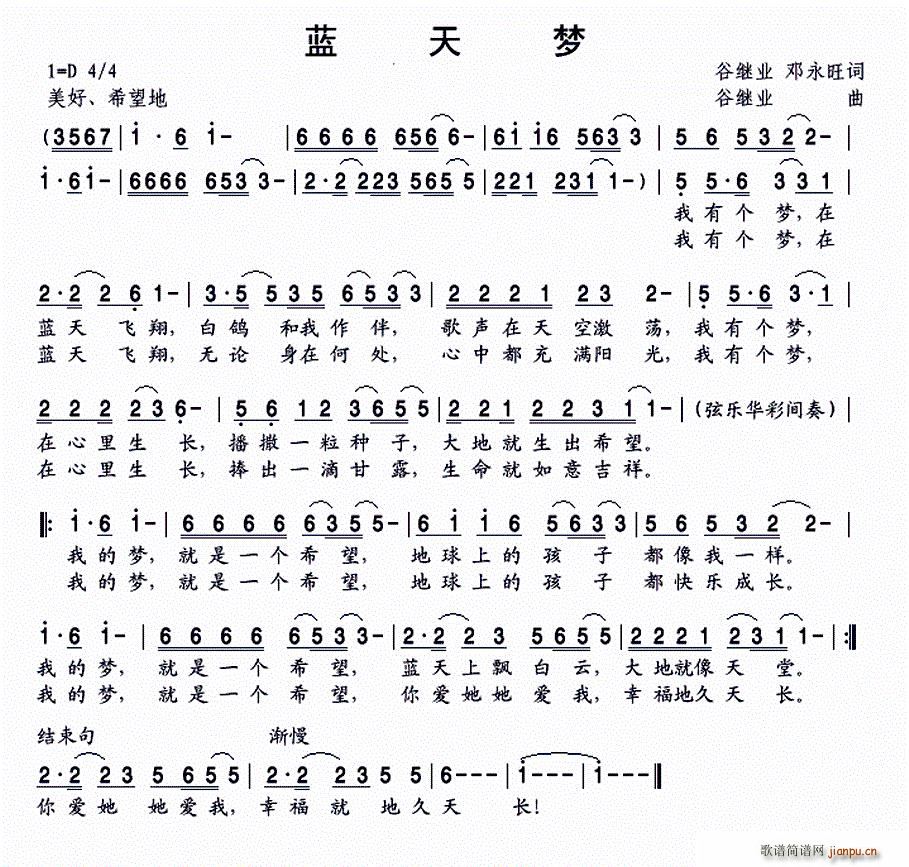 蓝 天 梦
1=D 4/4 谷继业 邓永旺词
美好、希望地 谷继业 曲
(3567|i·6 i-|6666 6566-|6i i6 5633 3|565322-|
i·6i-|6666 6533-|2·2 223 5655|221 2311-)|5 5·6 331|
我有个 梦,在
我有个 梦,在
2·2 26 1-|3·5 535 6533|2221 23 2-|5 5·6 3·1|
蓝天 飞翔,白鸽 和我作伴, 歌声在天 空激 荡,我有个梦,
蓝天 飞翔,无论 身在何处, 心中都充 满阳 光,我有个梦,
222 23 6-|56 12 3655|221 22311-|(弦乐华彩间奏)
在心里生 长,播撒一粒种 子,大地就生出希望。
在心里生 长,捧出一滴甘 露,生命就如意吉祥。
‖:i·6 i-|6666 6355-|6i i6 5633|565322-|
我的梦,就是一个希望, 地球上的孩 子 都像我一样。
我的梦,就是一个希望, 地球上的孩 子 都快乐成长。
i·6 i-|6666 6533-|2·2 23 5655|2221 2311-:‖
我的梦, 就是一个 希望, 蓝天上飘 白云,大地就像天 堂。
我的梦, 就是一个 希望, 你爱她她 爱我,幸福地久天 长。
结束句 渐慢
2·2 23 5655|2·2 23 5 5|6---|i---|i---‖
你爱她 她爱我,幸福就 地久天 长!
歌谱简谱网 jianpu.cn